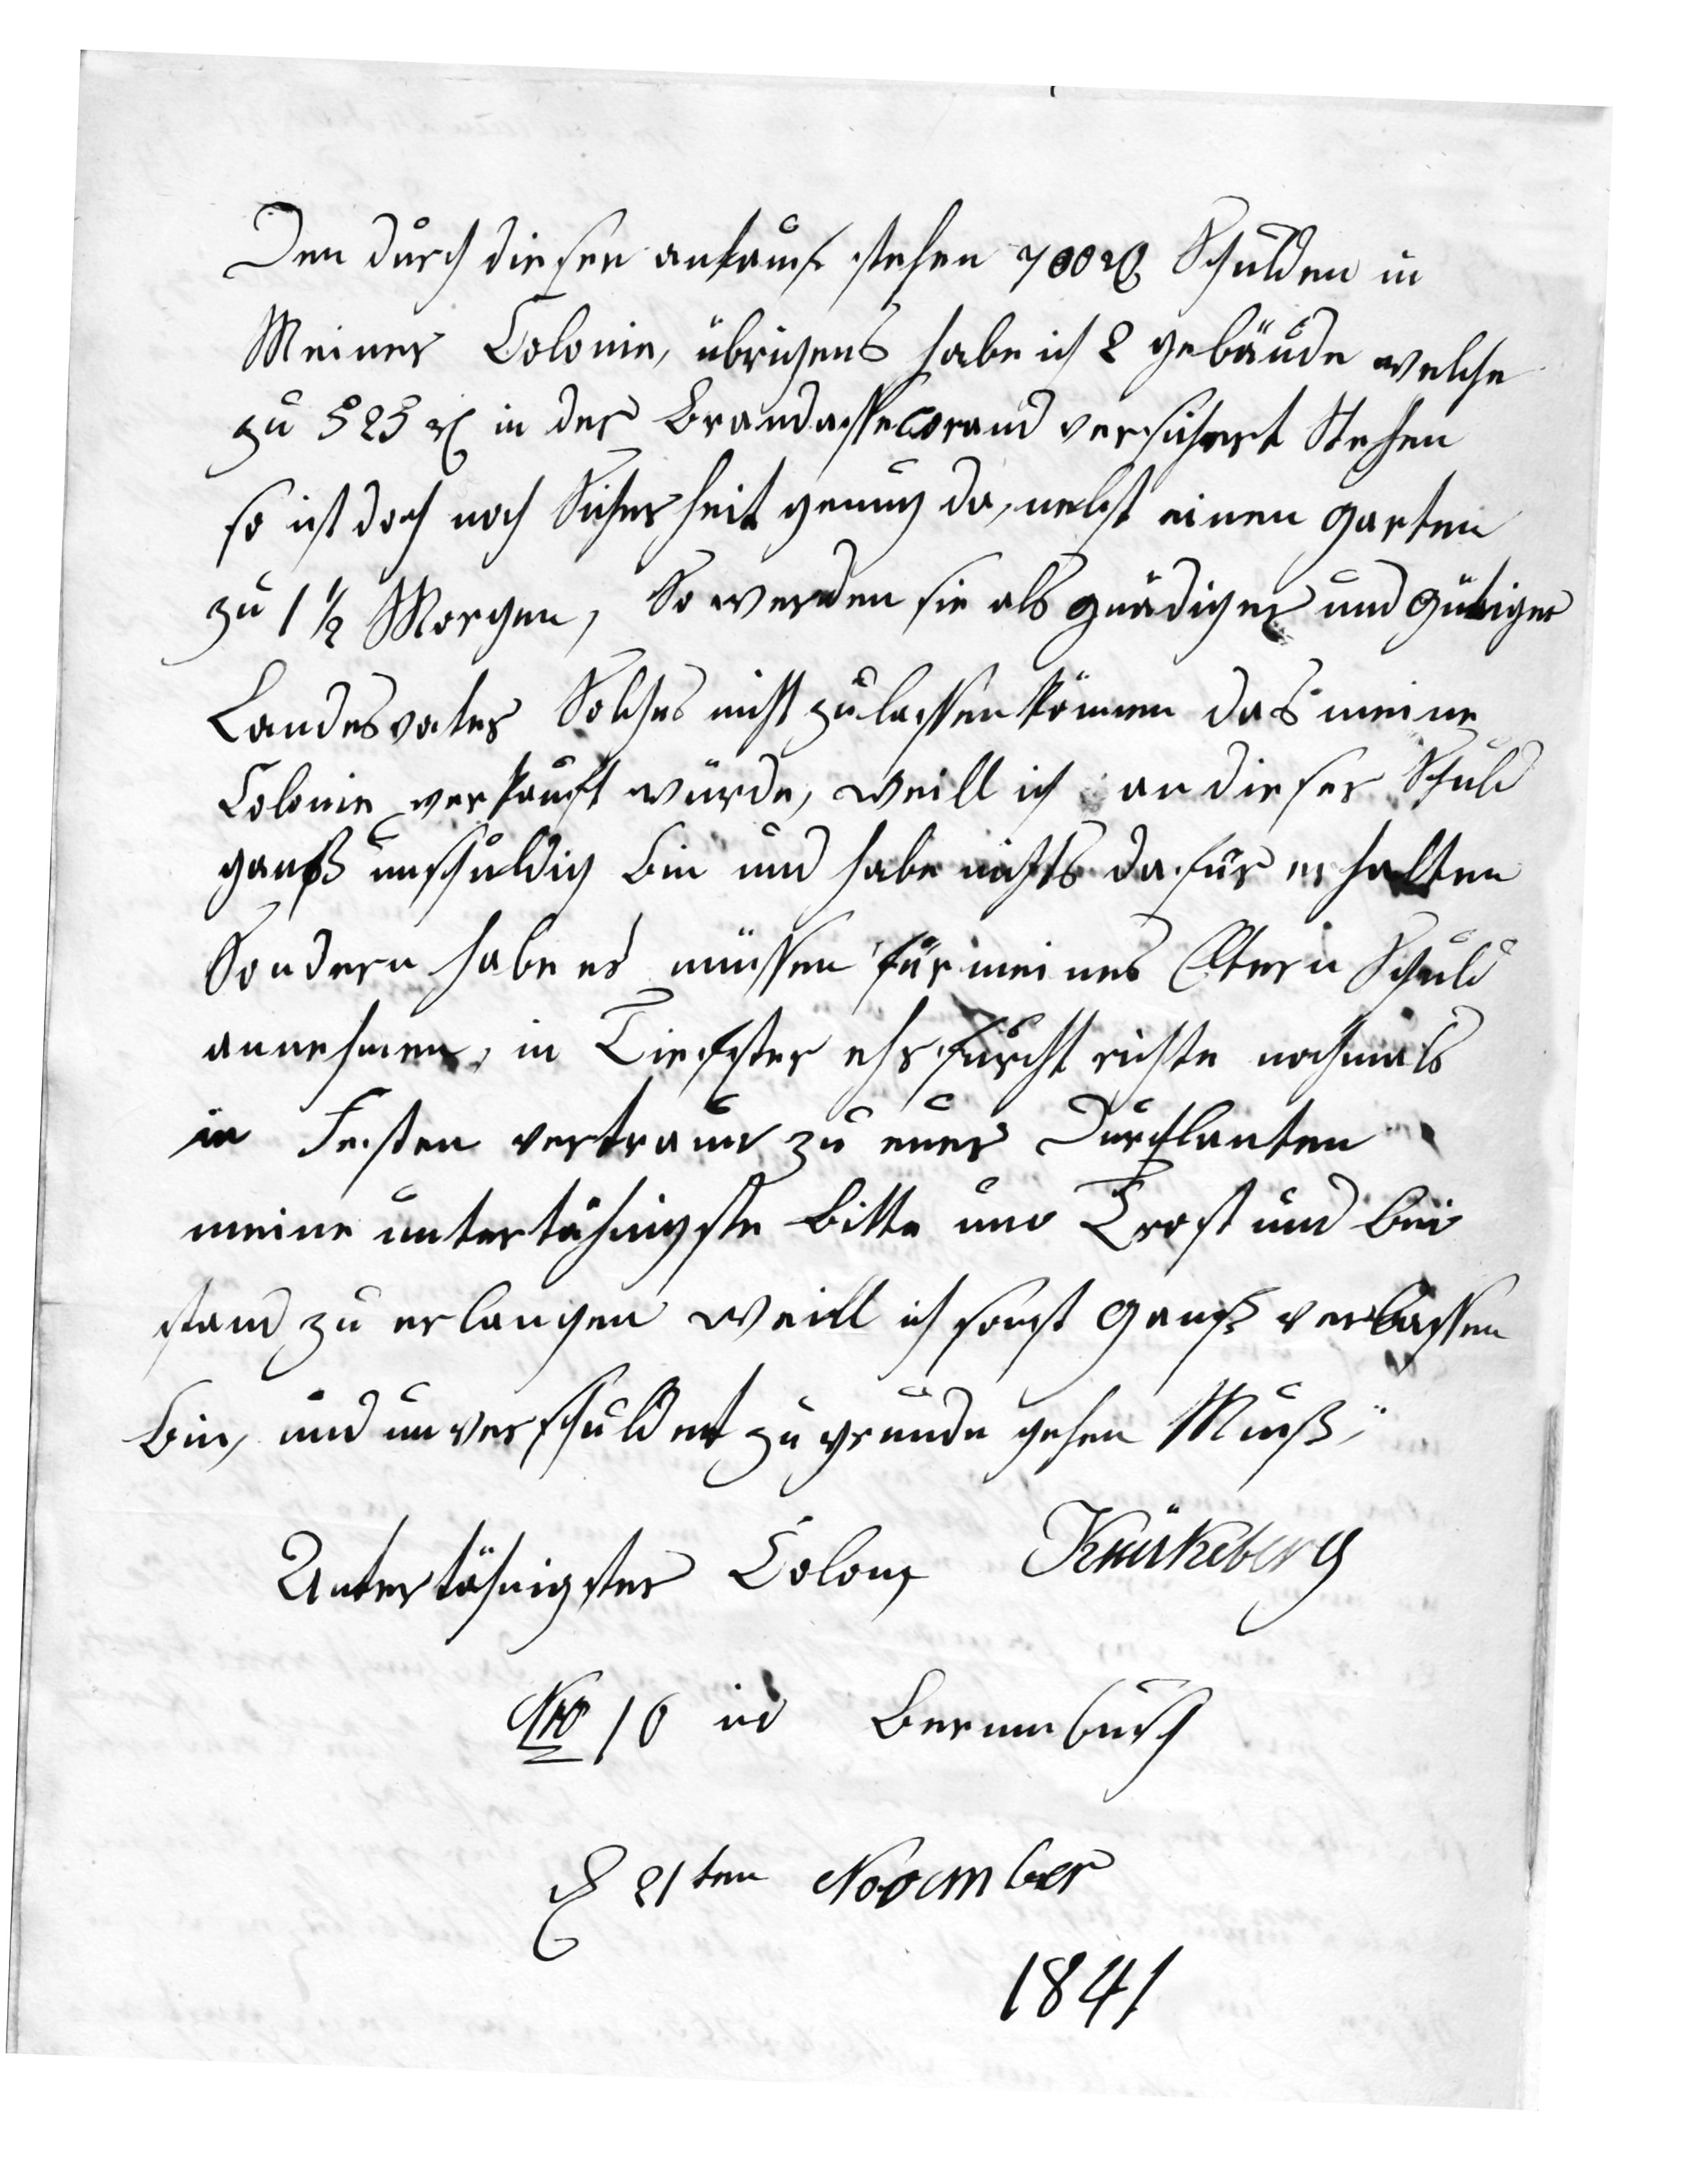 Den durch diesen ankauf stehen 700 rt Schulden in
Meiner Colonie, übrigens habe ich 2 gebäude welche
zu 525 rt in der Brandassecorand versichert Stehen
so ist doch noch Sicherheit genug da, nebst einen garten
zu 1 1/2 Morgen, So werden sie als gnädiger und gütiger
Landesvater Solches nicht zulassen können das meine
Colonie verkauft würde, weill ich an dieser Schuld
ganß unschuldig bin und habe nichts dafür erhalten
Sondern habe es müssen für meines Eltern Schuld
annehmen, in Tiefster ehrfurcht richte nochmals
in Festen vertraun zu euer Durchlauten
meine untertähnigste bitte um Trost und bei
stand zu erlangen weill ich sonst ganß verlassen
bin, und unverschuldet zu grunde gehen Muß,
Untertähnigster Colon Knükeberg
Nro 16 in
d 21ten November
1841